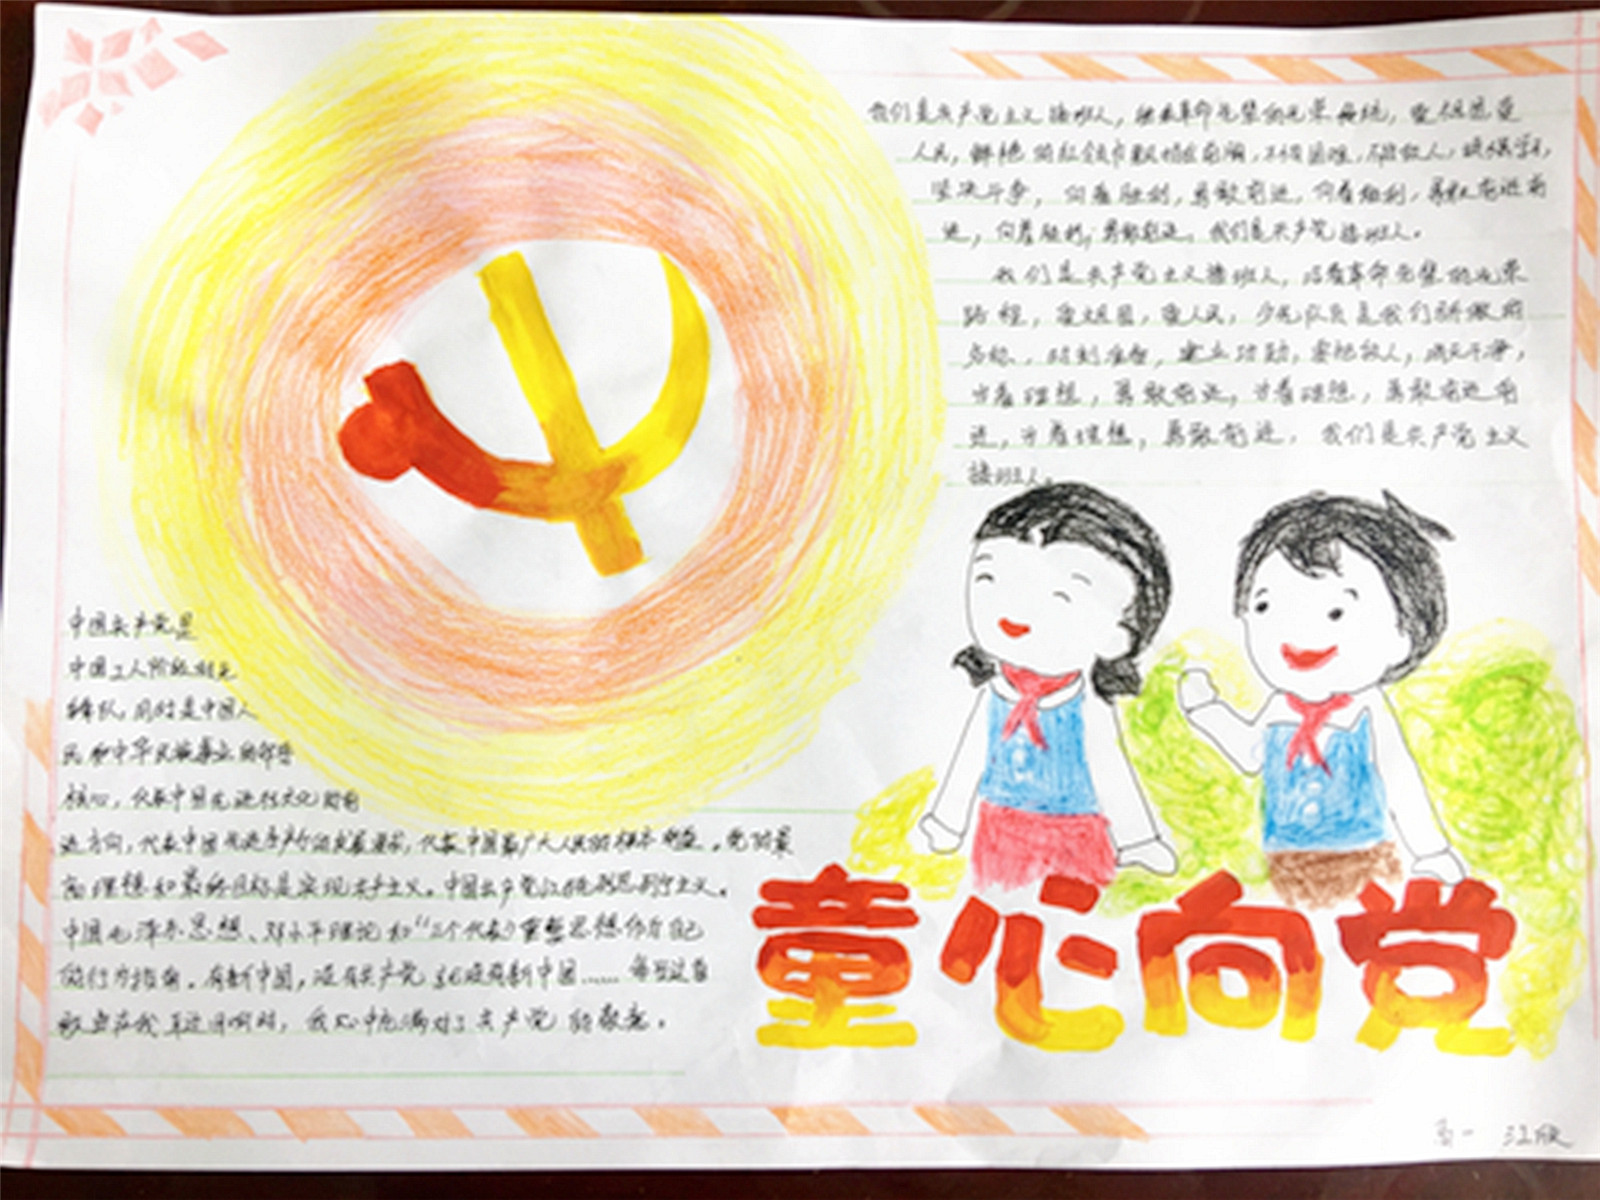 我们是共产党主义接班人，继承革命先辈的光荣传统，爱祖国爱
人民，鲜艳的红领巾飘扬在前胸，不怕困难，不怕敌人，顽强学习，
坚决斗争，向着胜利，勇敢前进，向着胜利，勇敢前进前
进，向着胜利，勇敢前进，我们是共产党接班人。
我们是共产党主义接班人，沿着革命先辈的光荣
路程，爱祖国，爱人民，少先队员是我们骄傲的
名称，时刻准备，建立功勋，要把敌人，消灭干净，
为着理想，勇敢前进，为着理想，勇敢前进前
进，为着理想，勇敢前进，我们是共产党主义
接班人。
中国共产党是
中国工人阶级的先
锋队，同时是中国人
民和中华民族事业的领导
核心，代表中国先进社文化的前
进方向，代表中国先进生产力的发展要求，代表中国最广大人民的根本利益。党的最
高理想和最终目标是实现共产主义。中国共产党以马列思列宁主义。
中国毛泽东思想、邓小平理论和“三个代表”重要思想作为自己
的行为指南。有新中国，没有共产党就没有新中国……每当这首
歌在我耳边回响时，我心中充满对了共产党的敬意。
童心向党
高一 江欣